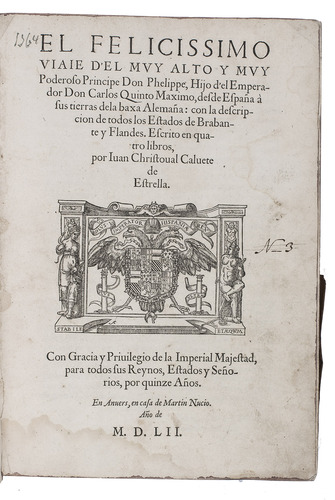 1364
EL FELICISSIMO
VIAIE D'EL MVY ALTO Y MVY
Poderoso Principe Don Phelippe, Hijo d'el Empera-
dor Don Carlos Quinto Maximo, desde España à
sus tierras dela baxa Alemaña: con la descrip-
cion de todos los Estados de Braban-
te y Flandes. Escrito en qua-
tro libros,
por Iuan Christoual Caluete
de
Estrella.
N 3
HISPANIS
STABILE
Con Gracia y Priuilegio de la Imperial Majestad,
para todos sus Reynos, Estados y Seño-
rios, por quinze Años.
En Anuers, en casa de Martin Nucio.
Año de
M. D. LII.